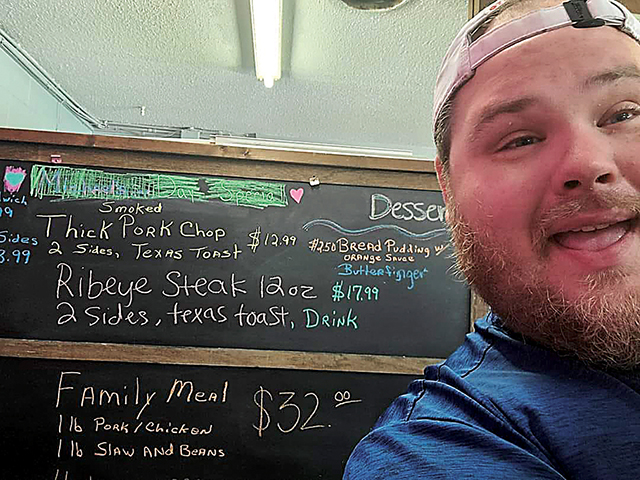 Dessert
wich
99
Smoked
Thick Pork Chop $12.99
2 Sides, Texas Toast
Sides
8.99
$2.50 Bread Pudding w/
Orange Sauce
Butterfinger
Ribeye Steak 12oz $17.99
2 Sides, Texas Toast, Drink
Family Meal $32.00
1 lb Pork/Chicken
1 lb Slaw and Beans